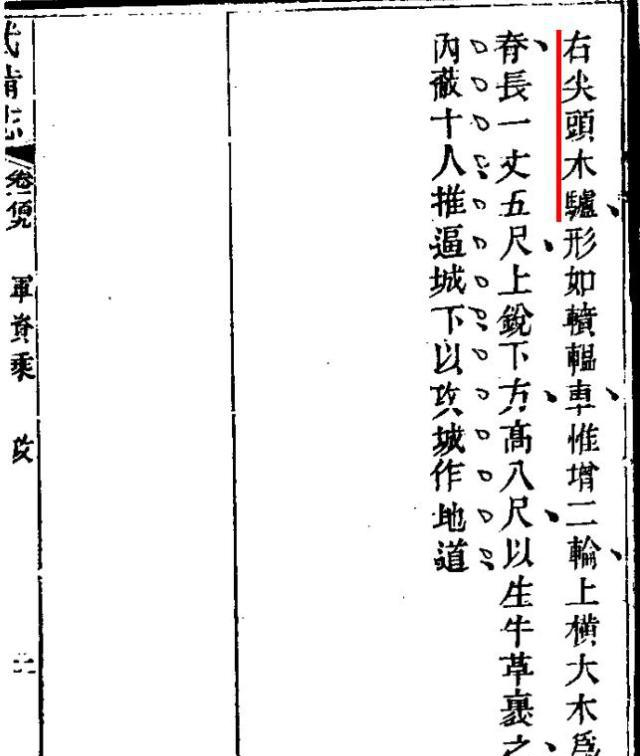 右尖頭木驢形如轒轀車惟增二輪上橫大木爲
脊長一丈五尺上銳下方高八尺以生牛革裹之
內蔽十人推逼城下以攻城作地道
武備志 卷一百九 軍資乘 攻 二